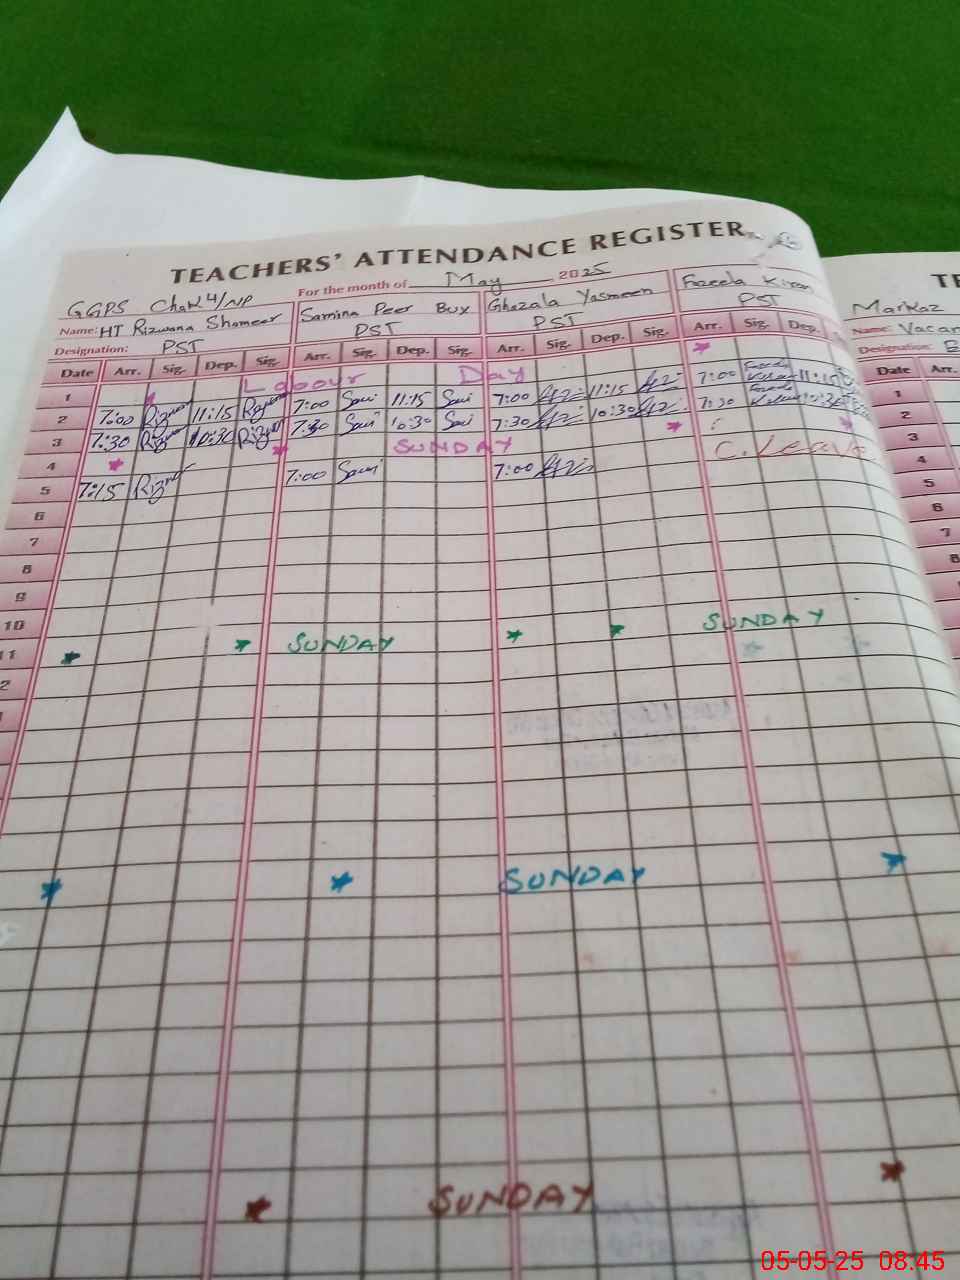 TEACHERS' ATTENDANCE REGISTER
For the month of May 2025
GGPS Chak 4/NP
Name: HT Rizwana Shameer
Samina Peer Bux
Ghazala Yasmeen
Fozeela Kiran
Designation: PST
PST
PST
PST
Date Arr. Sig. Dep. Sig. Arr. Sig. Dep. Sig. Arr. Sig. Dep. Sig. Arr. Sig. Dep.
1 Labour Day
2 7:00 11:15 7:00 11:15 7:00 11:15 7:00 11:15
3 7:30 10:30 7:30 10:30 7:30 10:30 7:30 10:30
4 SUNDAY
5 7:15 7:00 7:00 C. Leave
6
7
8
9
10
11 SUNDAY SUNDAY
SUNDAY
SUNDAY
Markaz
Name:
Designation:
Date Arr.
1
2
3
4
5
6
7
8
05-05-25 08:45